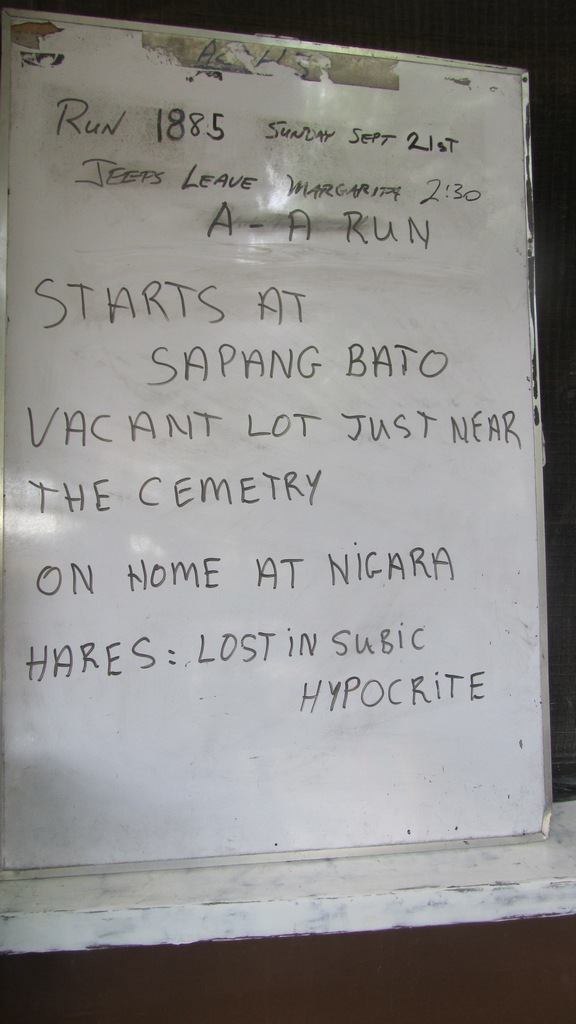 RUN 1885 SUNDAY SEPT 21ST
JEEPS LEAVE MARGARITA 2:30
A-A RUN
STARTS AT
SAPANG BATO
VACANT LOT JUST NEAR
THE CEMETRY
ON HOME AT NIGARA
HARES: LOST IN SUBIC
HYPOCRITE